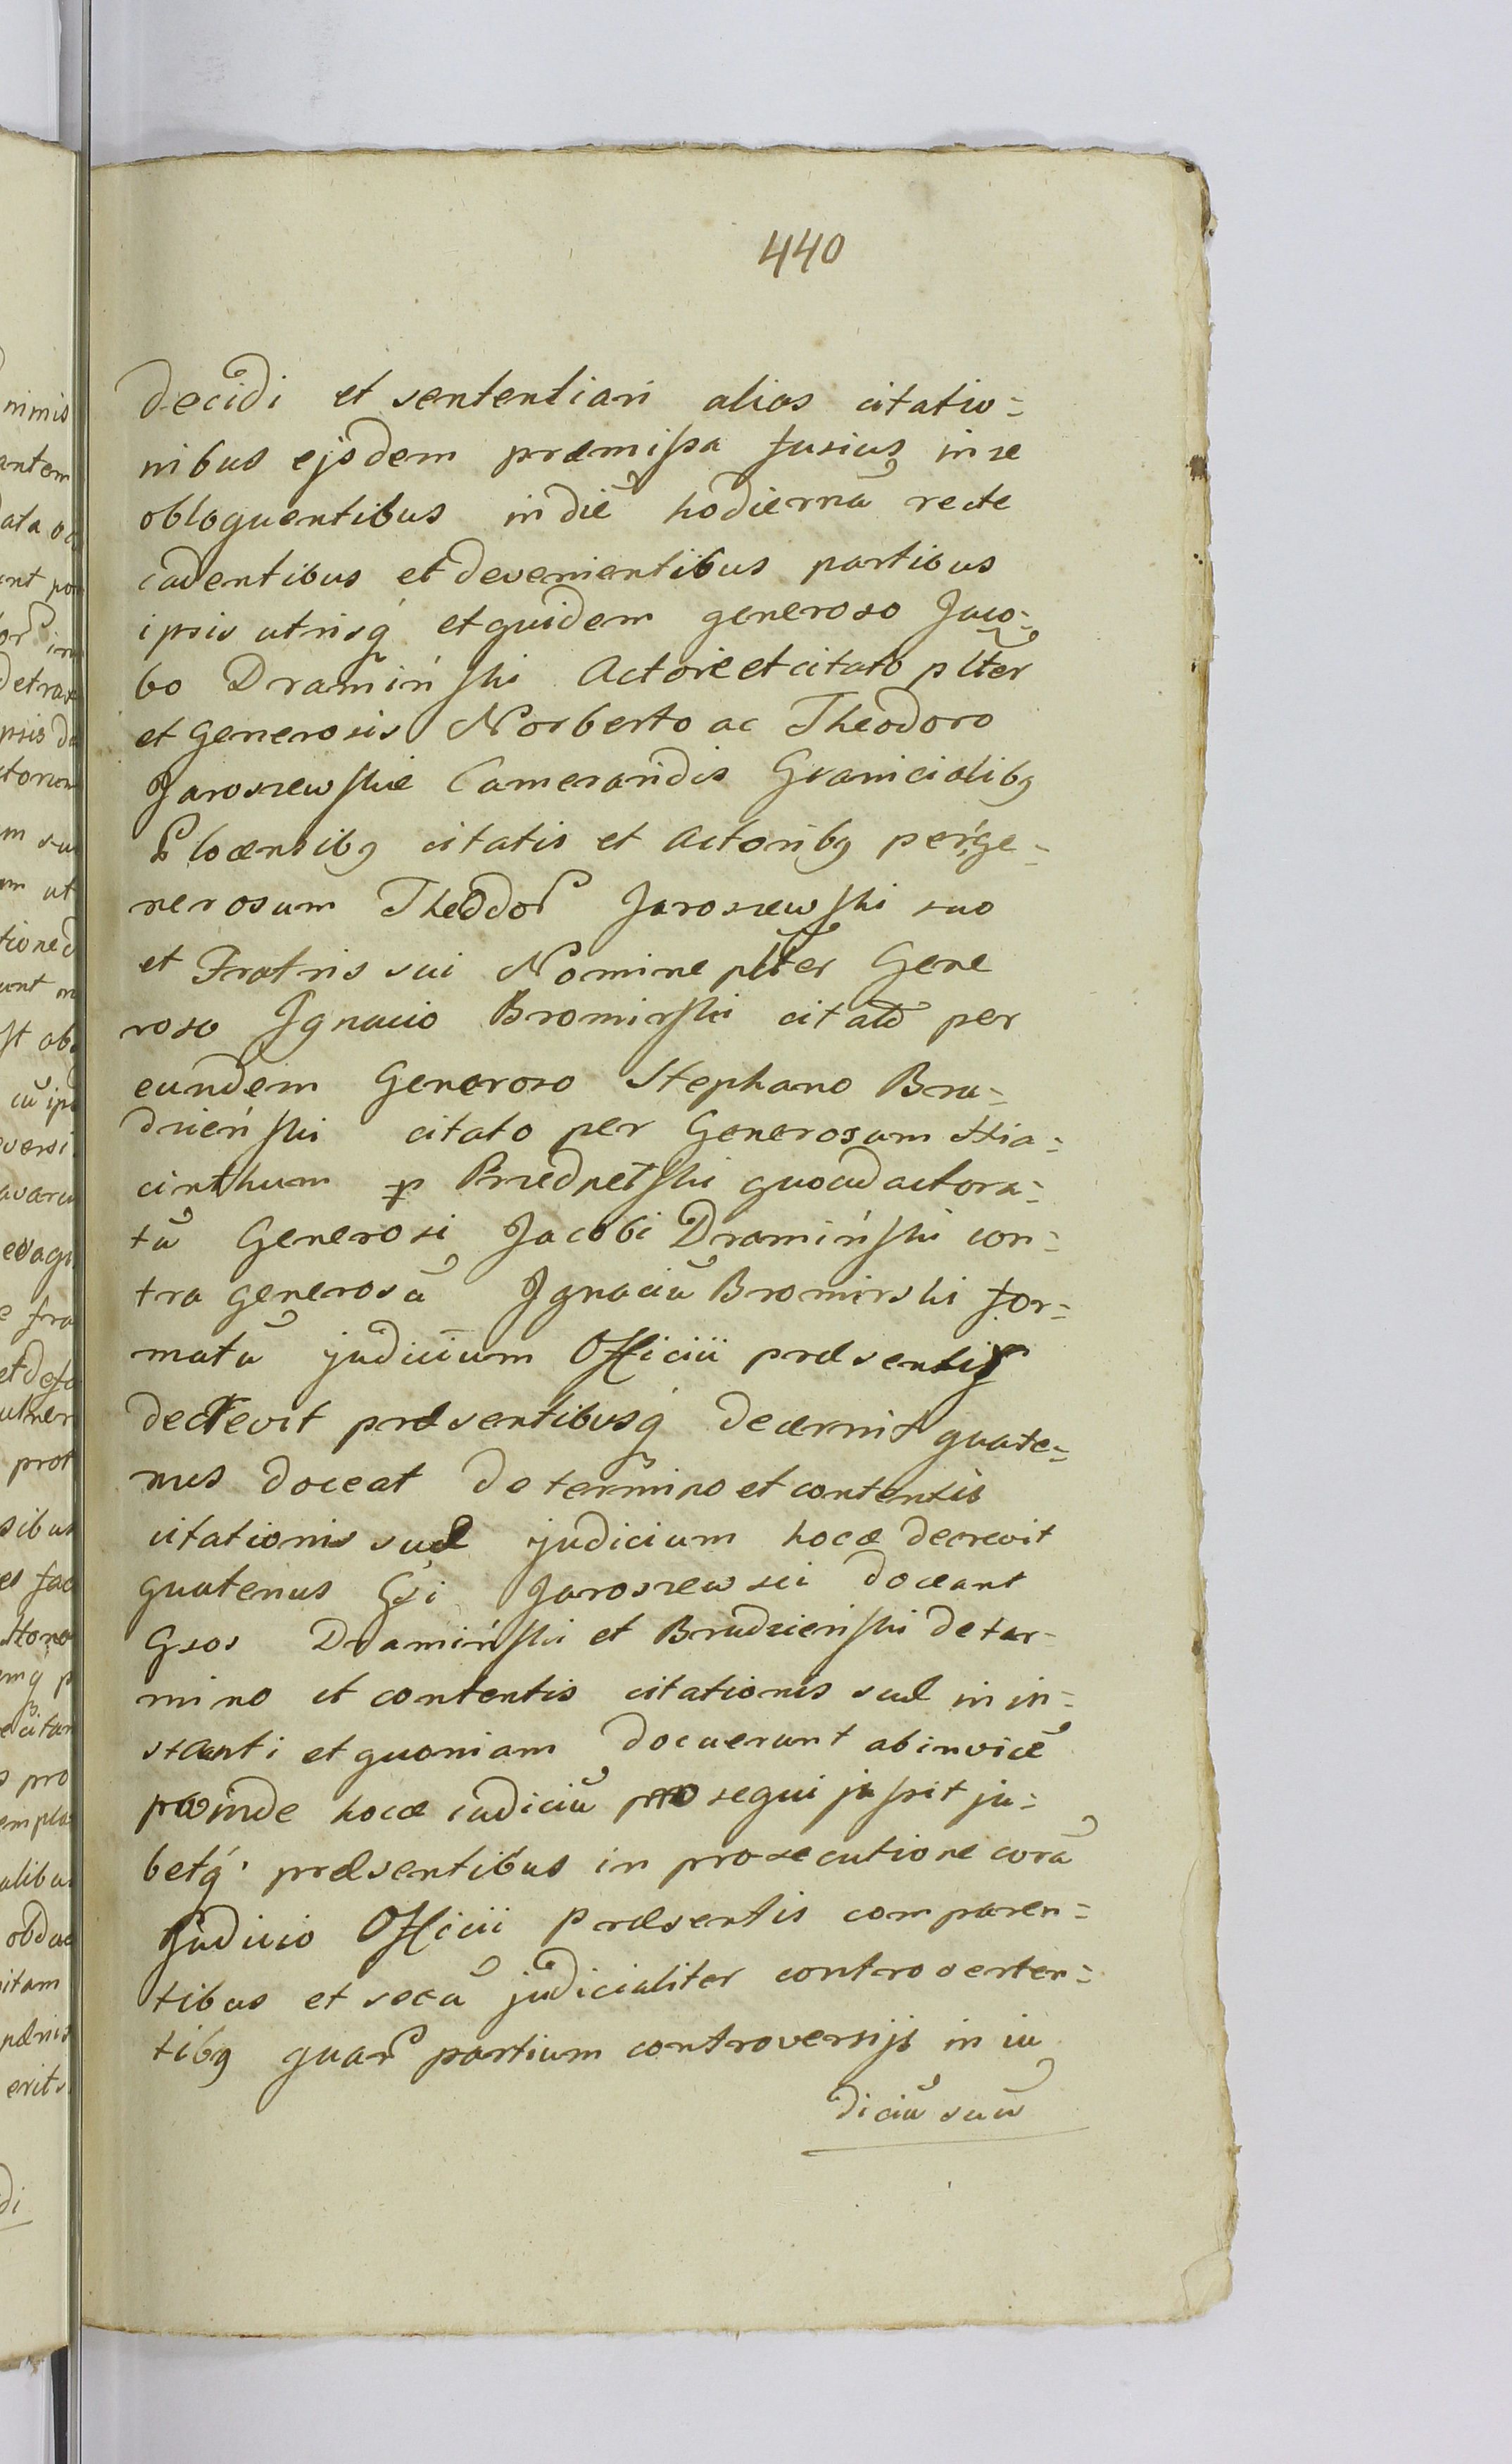 440
decidi et sententiari alias citatio=
nibus ejsdem præmissa fusius in se
obloquentibus in diē hodiernā recte
cadentibus et devenientibus partibus
ipsis utrisq́ et quidem generoso Jaco=
bo Dramiński Actore et citato plter
et Generosis Norberto ac Theodoro
Jaroszewskie Camerariis Granicialibꝯ
Plocensibꝯ citatis et Actoribꝯ per ge=
nerosum Theodor Jaroszewski suo
et Fratris sui Nomine plter Gene
roso Ignacio Bromirski citato per
eundem Generoso Stephano Bru=
dzieński citato per Generosum Hia=
cinthum Przedpełski quoad actora=
tū Generosi Jacobi Dramiński con=
tra generosū Ignaciū Bromirski for=
matū judicium Officii præsentis
decrevit præsentibusq́ decernit quate=
nus doceat de termino et contentis
citationis suæ judicium hocce decrevit
quatenus Gsi Jaroszewsci doceant
Gsos Dramiński et Brudzieński de ter=
mino et contentis citationis suæ in in=
stanti et quoniam docuerunt ab invicē
proinde hocce iudiciū prosequi jussit ju=
betq́ præsentibus in prosecutione corā
Judicio Officii Præsentis comparen=
tibus et secū judicialiter controverten=
tibꝯ quar partium controversijs in iu
diciū suū